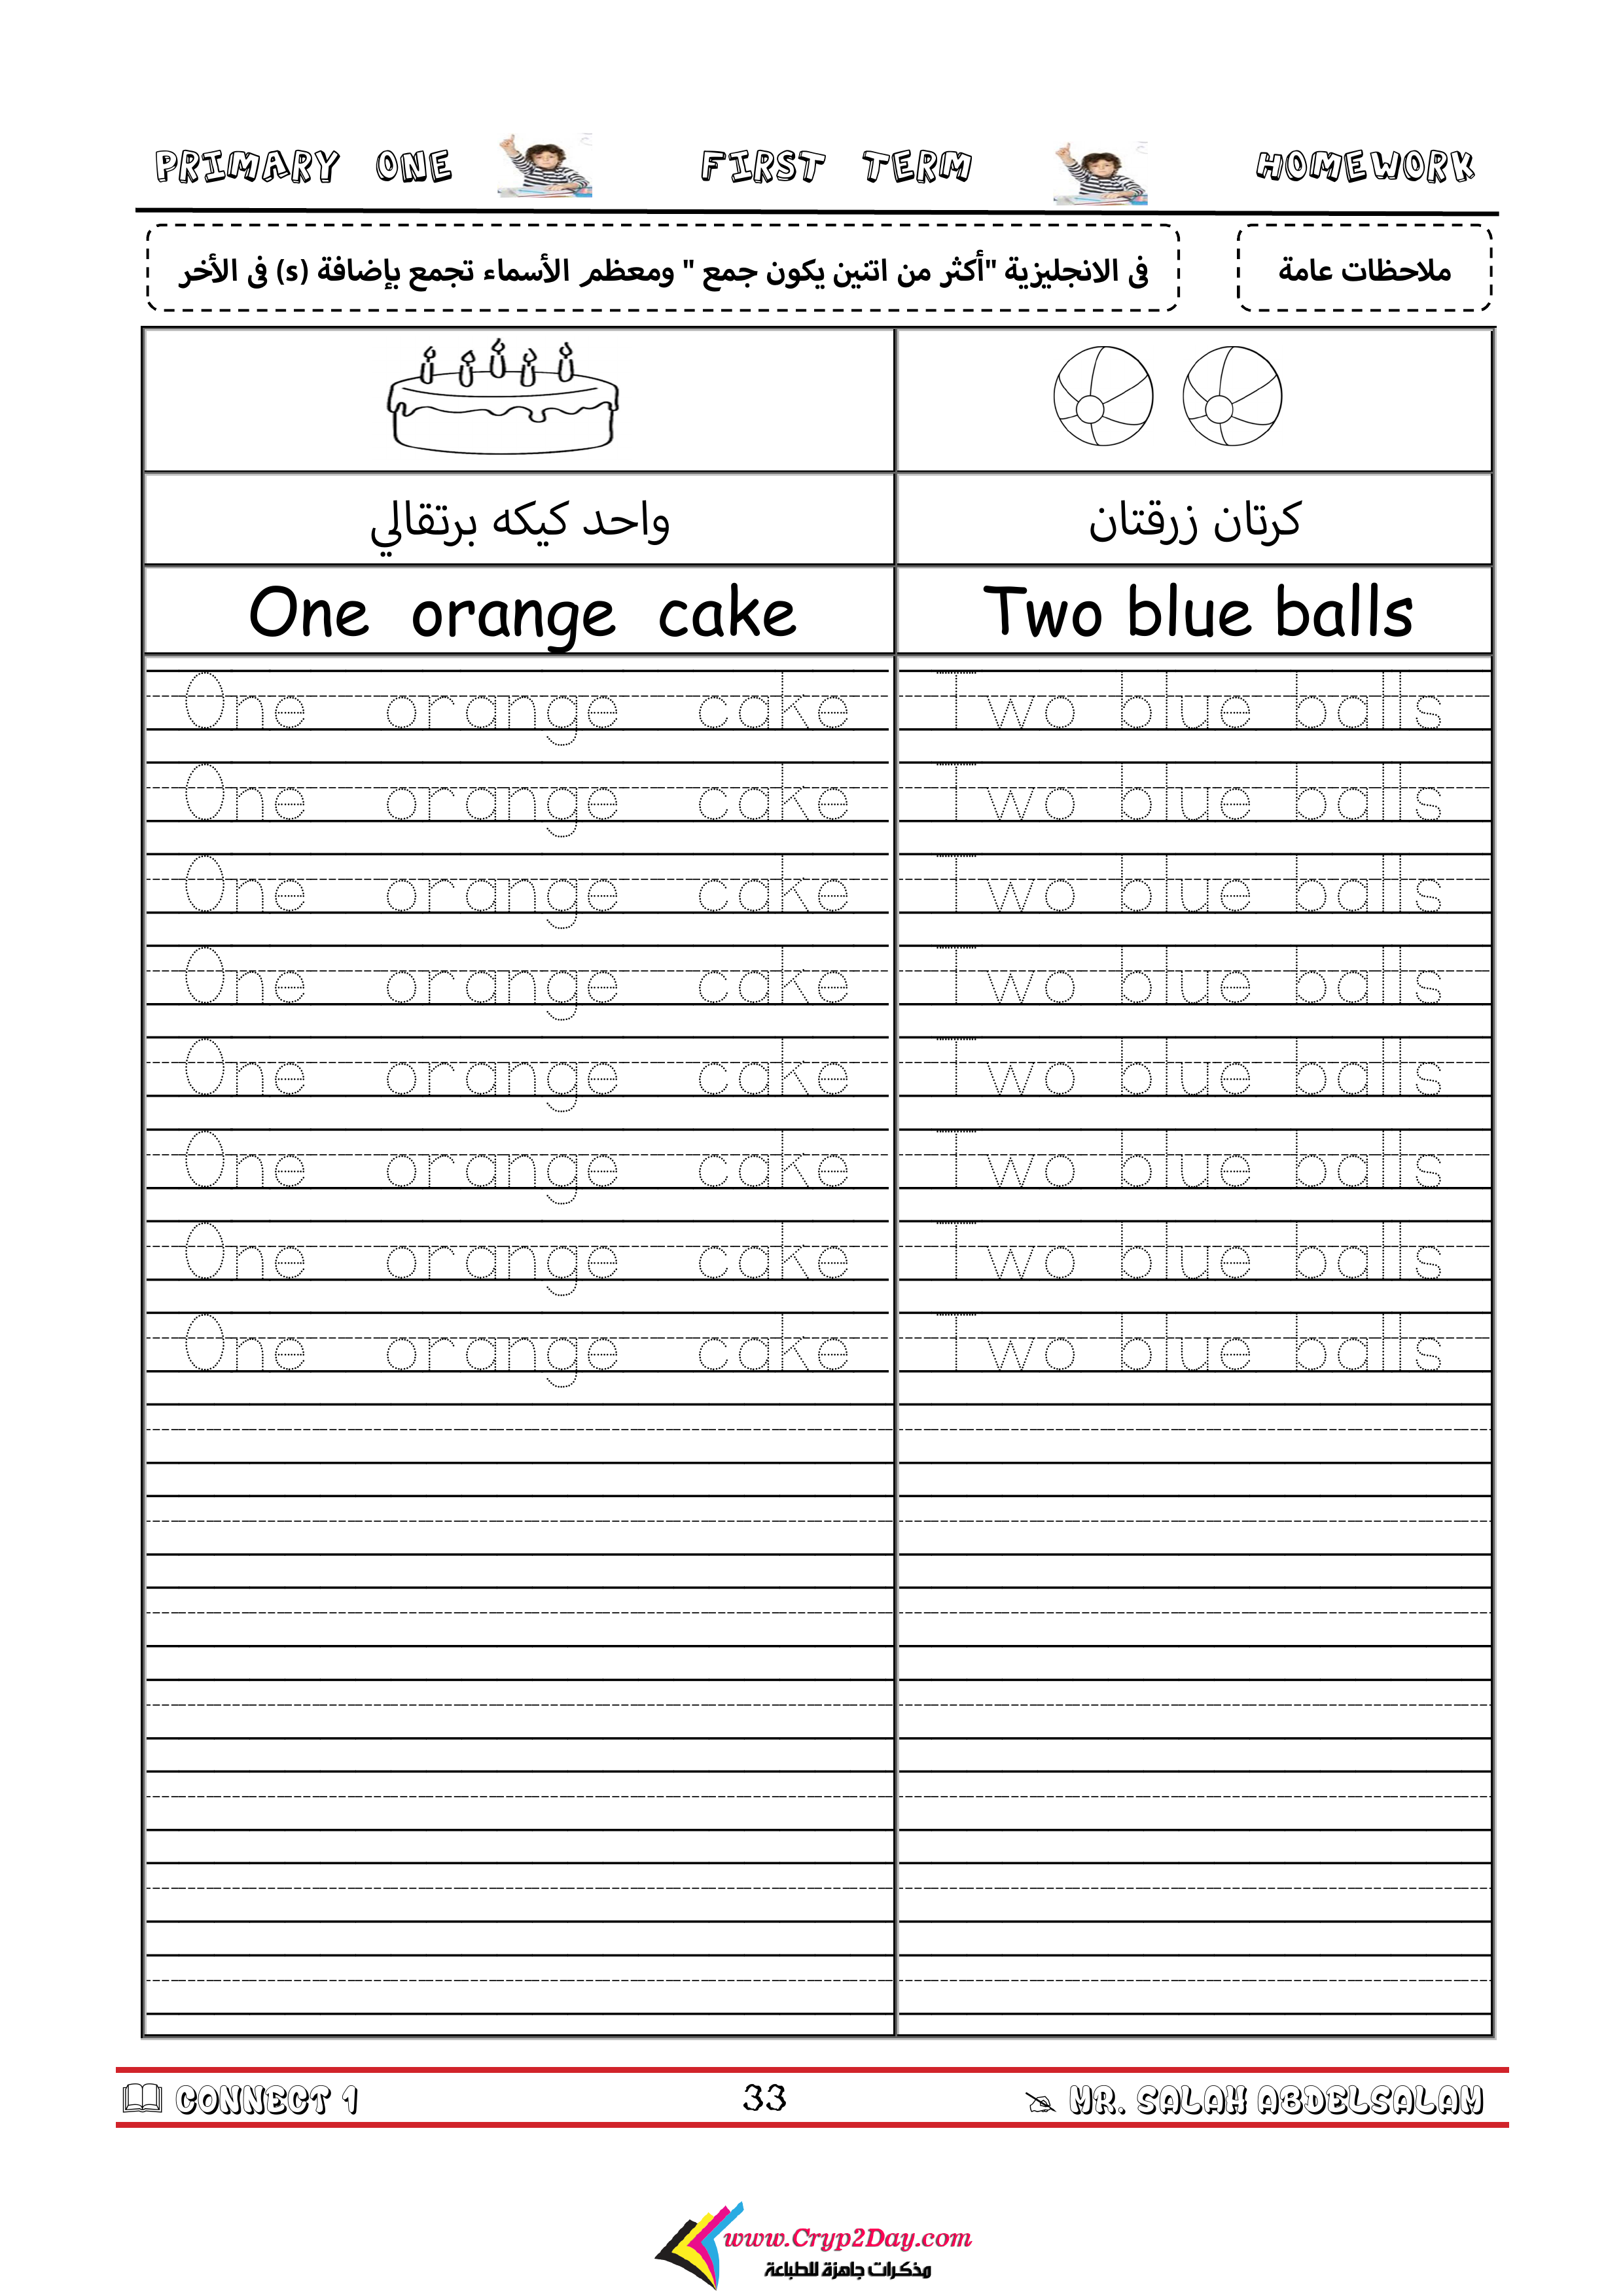 PRIMARY ONE FIRST TERM HOMEWORK
ملاحظات عامة
فى الانجليزية "أكثر من اتنين يكون جمع " ومعظم الأسماء تجمع بإضافة (s) فى الأخر
واحد كيكه برتقالي كرتان زرقتان
One orange cake Two blue balls
One orange cake Two blue balls
One orange cake Two blue balls
One orange cake Two blue balls
One orange cake Two blue balls
One orange cake Two blue balls
One orange cake Two blue balls
One orange cake Two blue balls
One orange cake Two blue balls
CONNECT 1 33 MR. SALAH ABDELSALAM
www.Cryp2Day.com
مذكرات جاهزة للطباعة